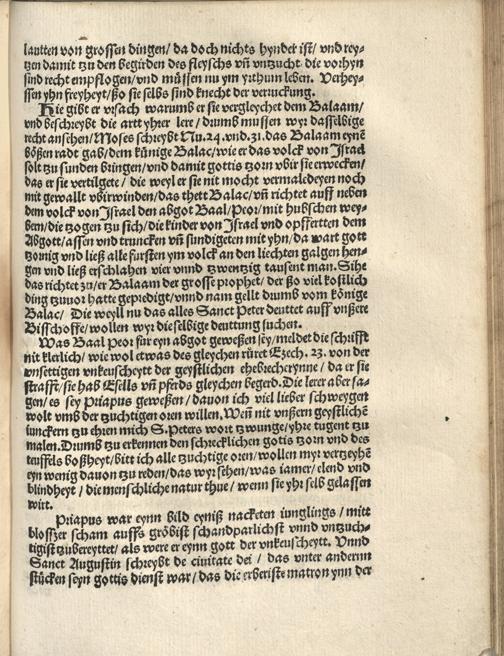 lautten von grossen dingen/ da doch nichts hynder ist/ vnd rey-
tzen damit tzu den begirden des fleyschs vñ vntzucht die vorhyn
sind recht empflogen/ vnd müssen nu ym yrthum leben. Verhey-
ssen yhn freyheyt/ ßo sie selbs sind knecht der verruckung.
Hie gibt er vrsach warumb er sie vergleychet dem Balaam/
vnd beschreybt die artt yhrer lere/ drumb mussen wyr dasselbige
recht ansehen/ Moses schreybt Nu. 24. vnd. 31. das Balaam eynē
bößen radt gab/ dem künige Balac/ wie er das volck von Jsrael
solt tzu sunden bringen/ vnd damit gottis tzorn vbir sie erwecken/
das er sie vertilgete/ die weyl er sie nit mocht vermaledeyen noch
mit gewallt vbirwinden/ das thett Balac/ vñ richtet auff neben
dem volck von Jsrael den abgot Baal/Peor/ mit hubschen wey-
bern/ die tzogen tzu sich/ die kinder von Jsrael vnd opffertten dem
Abgott/ assen vnd truncken vñ sundigeten mit yhn/ da wart gott
tzornig vnd ließ alle fursten ym volck an den liechten galgen hen-
gen vnd ließ erschlahen vier vnnd tzwentzig tausent man. Sihe
das richtet tzu/ er Balaam der grosse prophet/ der ßo viel kostlich
ding tzuuor hatte geprediget/ vnnd nam gellt drumb vom könige
Balac/ Die weyll nu das alles Sanct Peter deuttet auff vnßere
Bisschoffe/ wollen wyr die selbige deuttung suchen.
Was Baal Peor fur eyn abgot geweßen sey/ meldet die schrifft
nit klerlich/ wie wol etwas des gleychen rüret Ezech. 23. von der
vnsettigen vnkeuscheytt der geystlichen ehebrecherynne/ da er sie
strafft/ sie hab Esells vñ pferds gleychen begerd. Die lerer aber sa-
gen/ es sey Priapus geweßen/ dauon ich viel lieber schweygen
wolt vmb der tzuchtigen oren willen. Weñ nit vnßern geystlichē
iunckern tzu ehren mich S. Peters wort tzwunge/ yhre tugent tzu
malen. Drumb tzu erkennen den schrecklichen gotis tzorn vnd des
teuffels boßheyt/ bitt ich alle tzuchtige oren/ wollen myr vertzeyhē
eyn wenig dauon tzu reden/ das wyr sehen/ was iamer/ elend vnd
blindheyt/ die menschliche natur thue/ wenn sie yhr selb gelassen
wirt.
Priapus war eynn bild eyniß nacketen iunglings/ mitt
blosszer scham auffs gröbist schandparlichst vnnd vntzuch-
tigist tzubereyttet/ als were er eynn gott der vnkeuscheytt. Vnnd
Sanct Augustin schreybt de ciuitate dei/ das vnter anderm
stücken seyn gottis dienst war/ das die erberiste matron ynn der